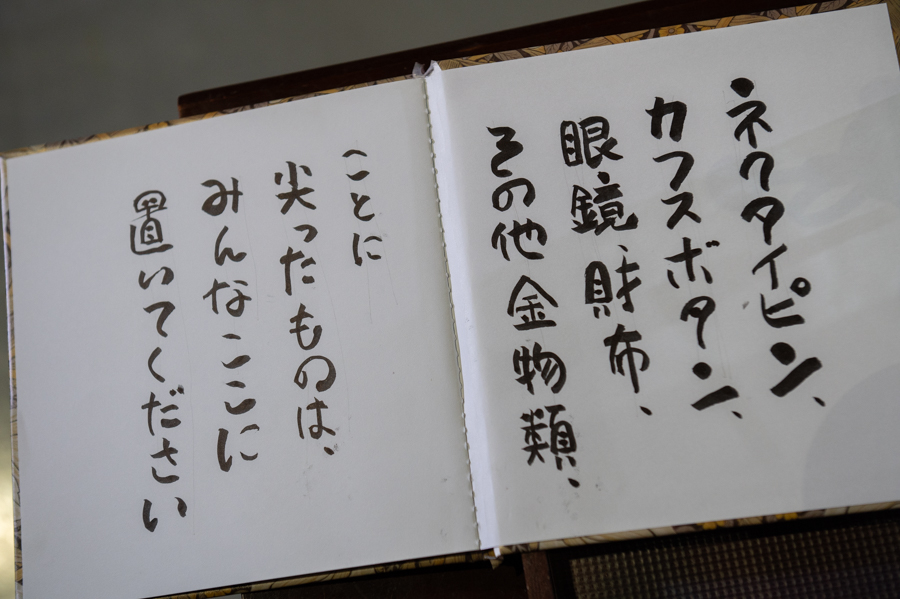 ネクタイピン、
カフスボタン、
眼鏡、財布、
その他金物類、
ことに
尖ったものは、
みんなここに
置いてください